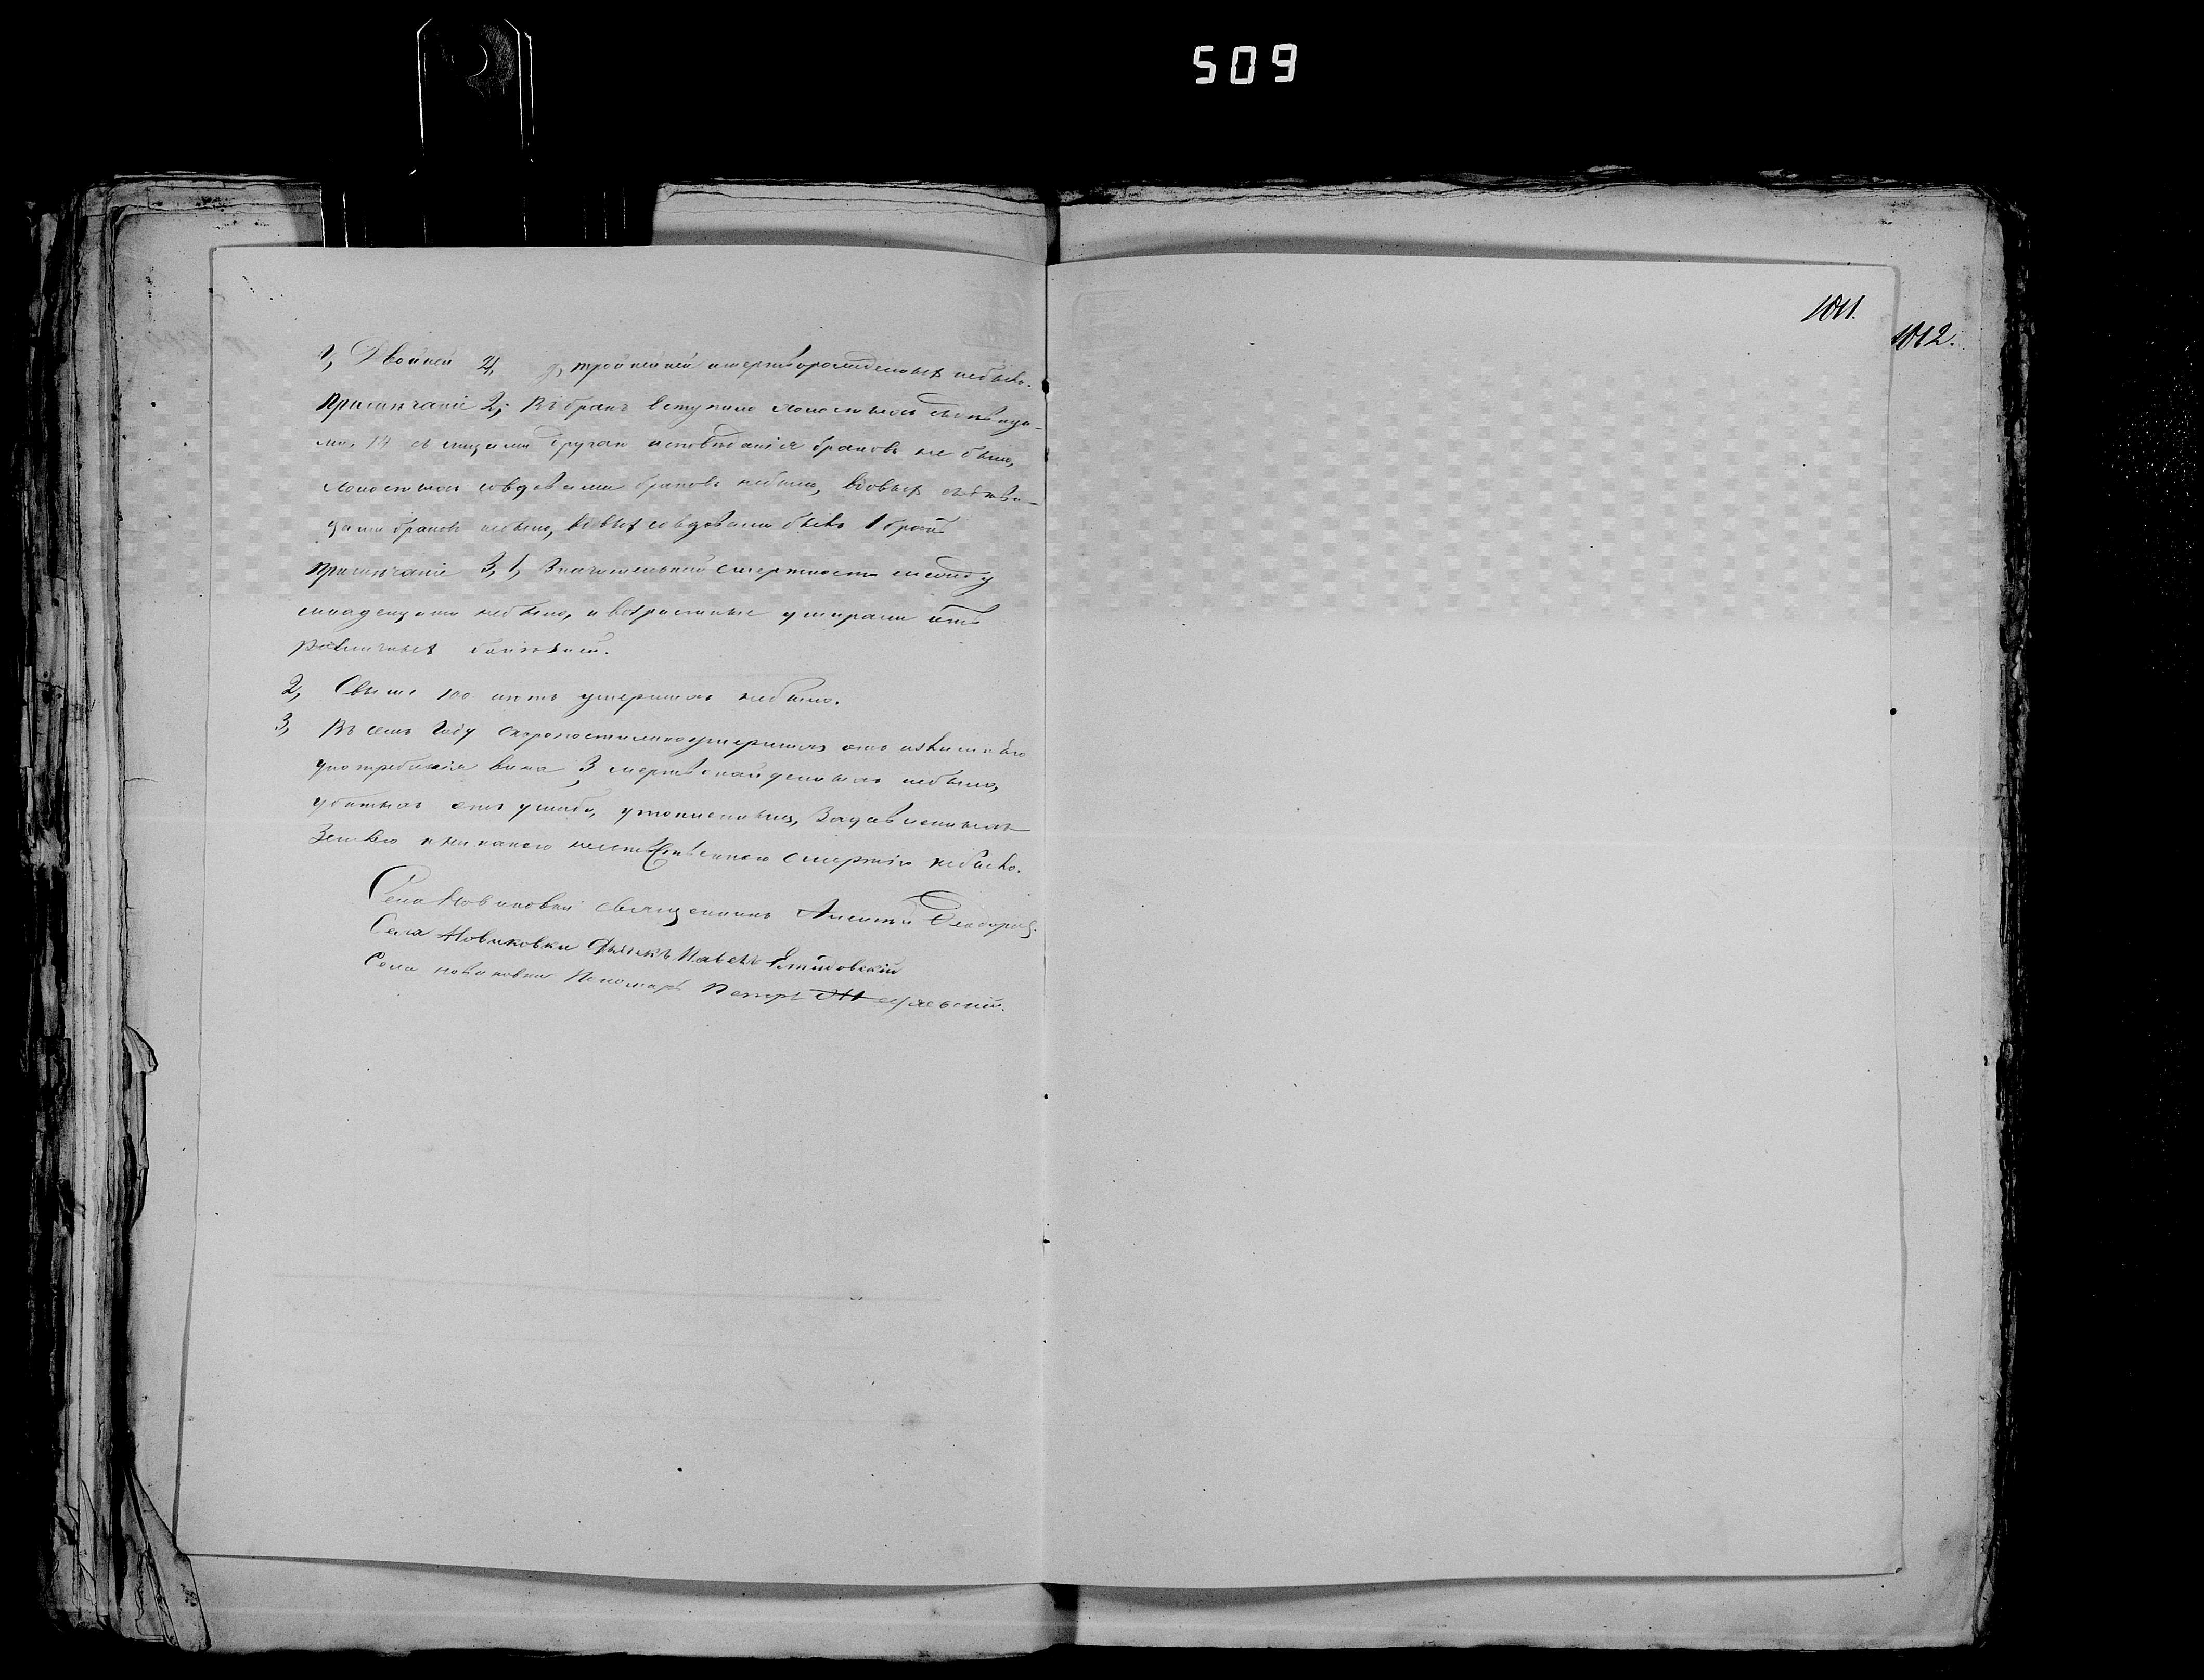 509
1011.
1012.
1, Двойней 2, у, тройней ни мертворожденныхъ небыло.
Примѣчаніе 2; Въ бракъ вступило холостыхъ съ дѣвица-
ми, 14 съ лицами другаго исповѣданія браковъ не было,
холостыхъ со вдовами браковъ небыло, вдовыхъ съ дѣви-
цами браковъ небыло, вдовыхъ со вдовами было 1 бракъ
Примѣчаніе 3, 1, Значительной смертности между
младенцами небыло, а возрастные умирали отъ
различныхъ болѣзней.
2, Свыше 100 лѣтъ умершихъ небыло.
3, Въ семъ году скоропостижно умершихъ отъ излишняго
употребленія вина 3 мертвонайденныхъ небыло,
убитыхъ отъ ушиба, утопленныхъ, задавленныхъ
землею и никакою неестественною смертію небыло.
Села Новиковки священникъ Ѳеодоровъ.
Села Новиковки Дьячекъ Павелъ
Села Новиковки Пономарь Петръ